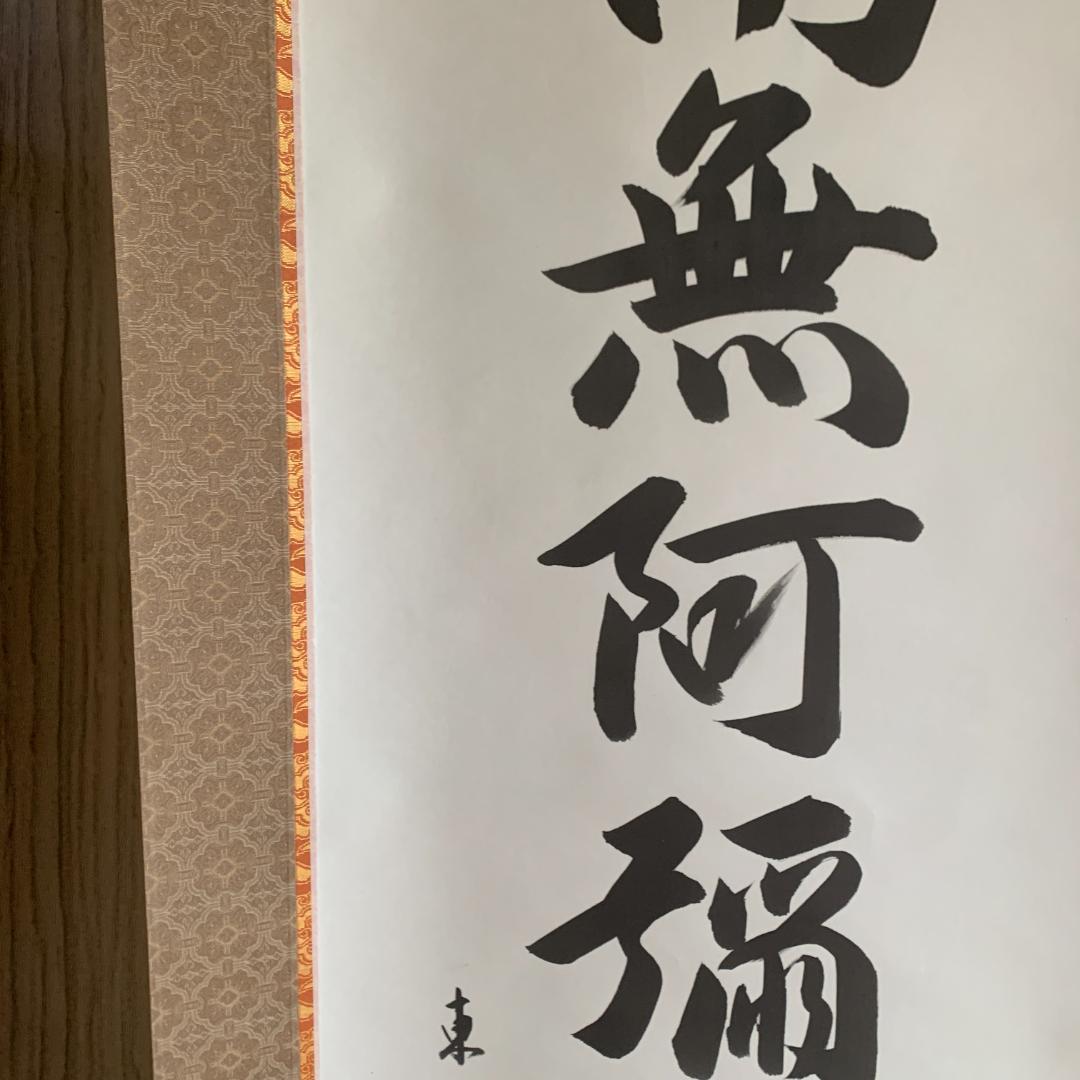 南無阿彌
東